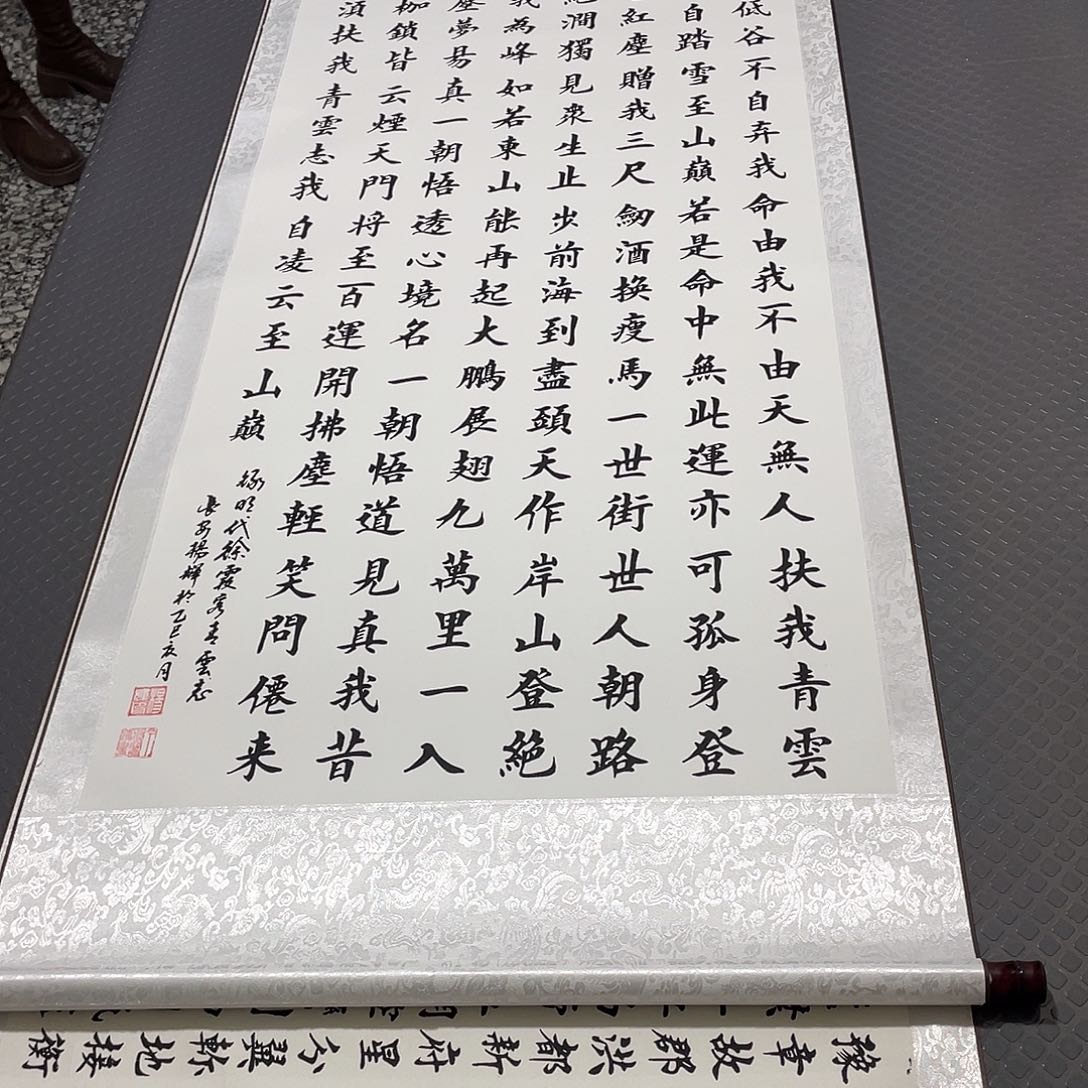 低谷不自弃我命由我不由天無人扶我青雲
自踏雪至山巔若是命中無此運亦可孤身登
紅塵贈我三尺劒酒換瘦馬一世街世人朝路
絕澗獨見衆生止步前海到盡頭天作岸山登絕
我為峰如若東山能再起大鵬展翅九萬里一入
塵夢易真一朝悟透心境名一朝悟道見真我昔
枷鎖皆云煙天門将至百運開拂塵輕笑問僊来
須扶我青雲志我自凌云至山巔
録明代徐霞客青雲志
長安楊輝於乙巳亥月
豫章故郡洪都新府星分翼軫地接衡